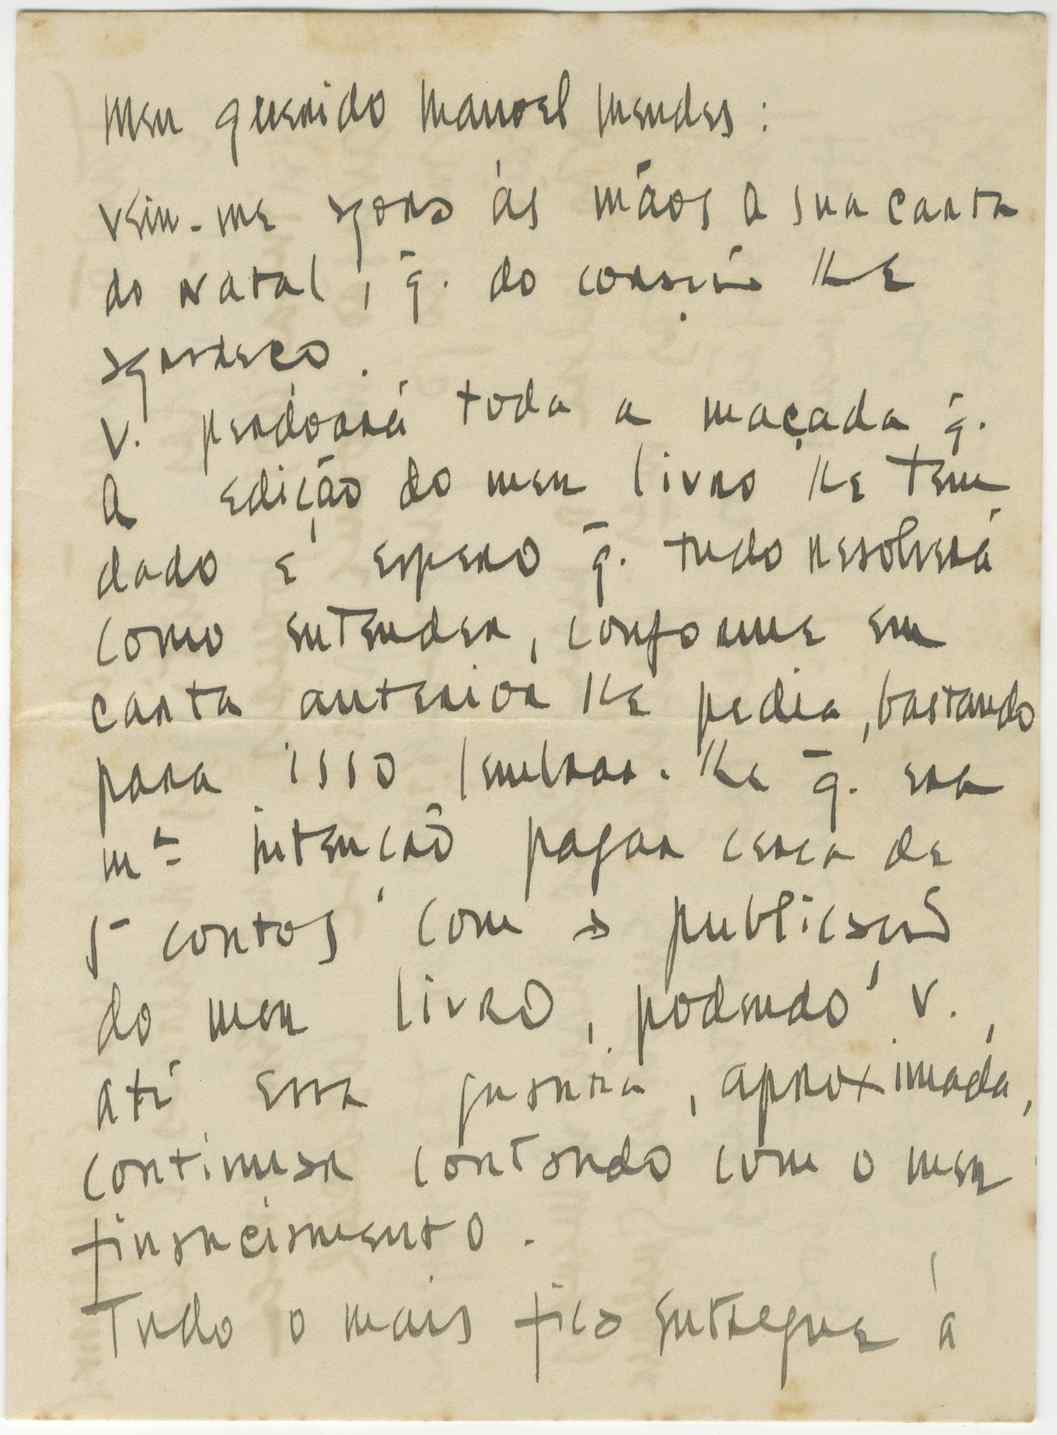 Meu querido Manoel Mendes:
Veiu-me agora às mãos a sua carta
do Natal, q̄. do coração lhe
agradeço.
V. perdoará toda a maçada q̄.
a edição do meu livro lhe tem
dado e espero q̄. tudo resolverá
como entender, conforme em
carta anterior lhe pedia, bastando
para isso lembrar-lhe q̄. era
mª intenção pagar cerca de
5 contos com a publicação
do meu livro, podendo V.,
até essa quantia, aproximada,
continuar contando com o meu
financiamento.
Tudo o mais fica entregue á